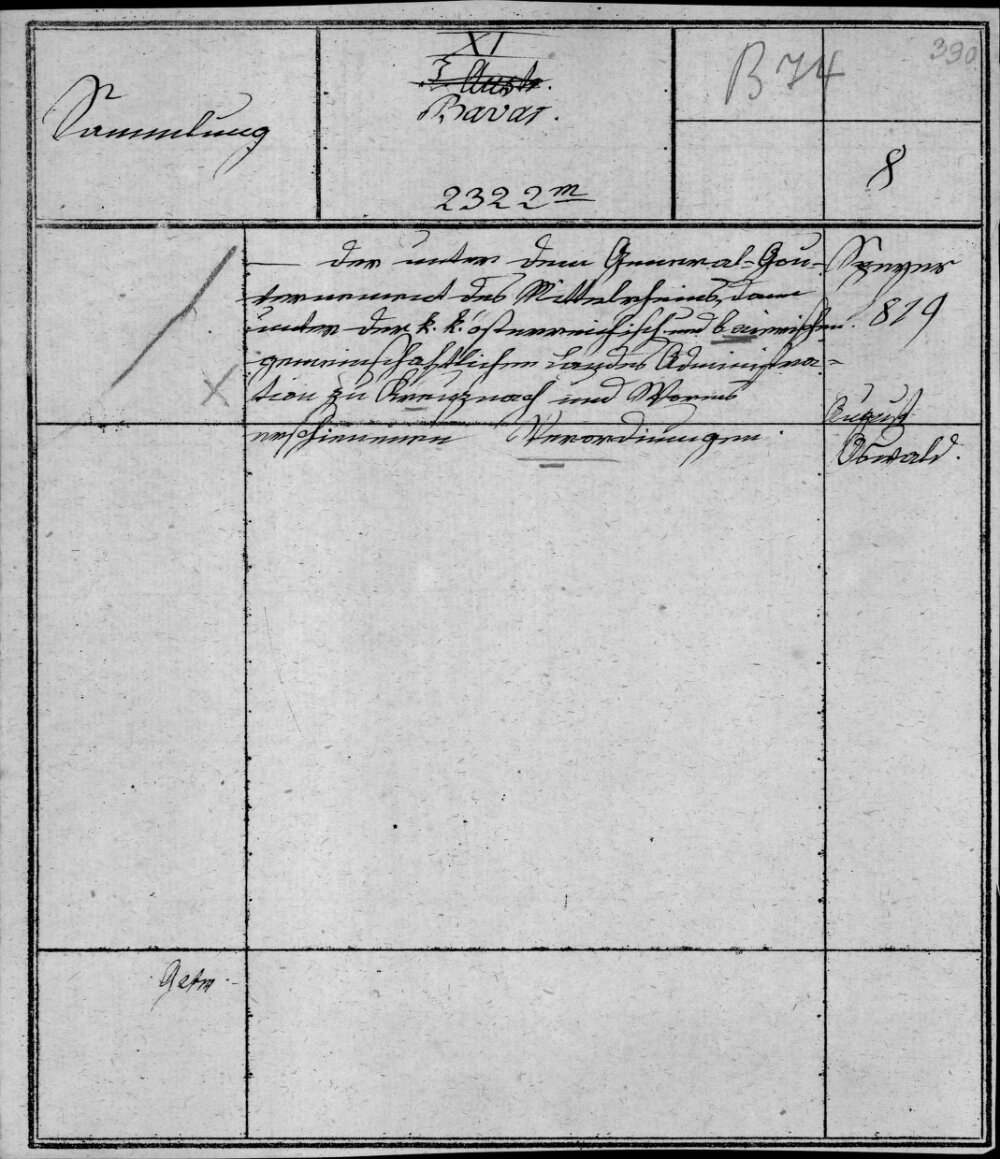 XI
J Austr.
Bavar.
2322 m
B 74
390
8
Sammlung
— der unter dem General-Gou-
vernement des Mittelrheins, dann
unter der k. k. österreichisch und baierischen
gemeinschaftlichen Landes Administra-
tion zu Kreuznach und Worms
erschienenen Verordnungen.
Speyer
819
August
Oswald.